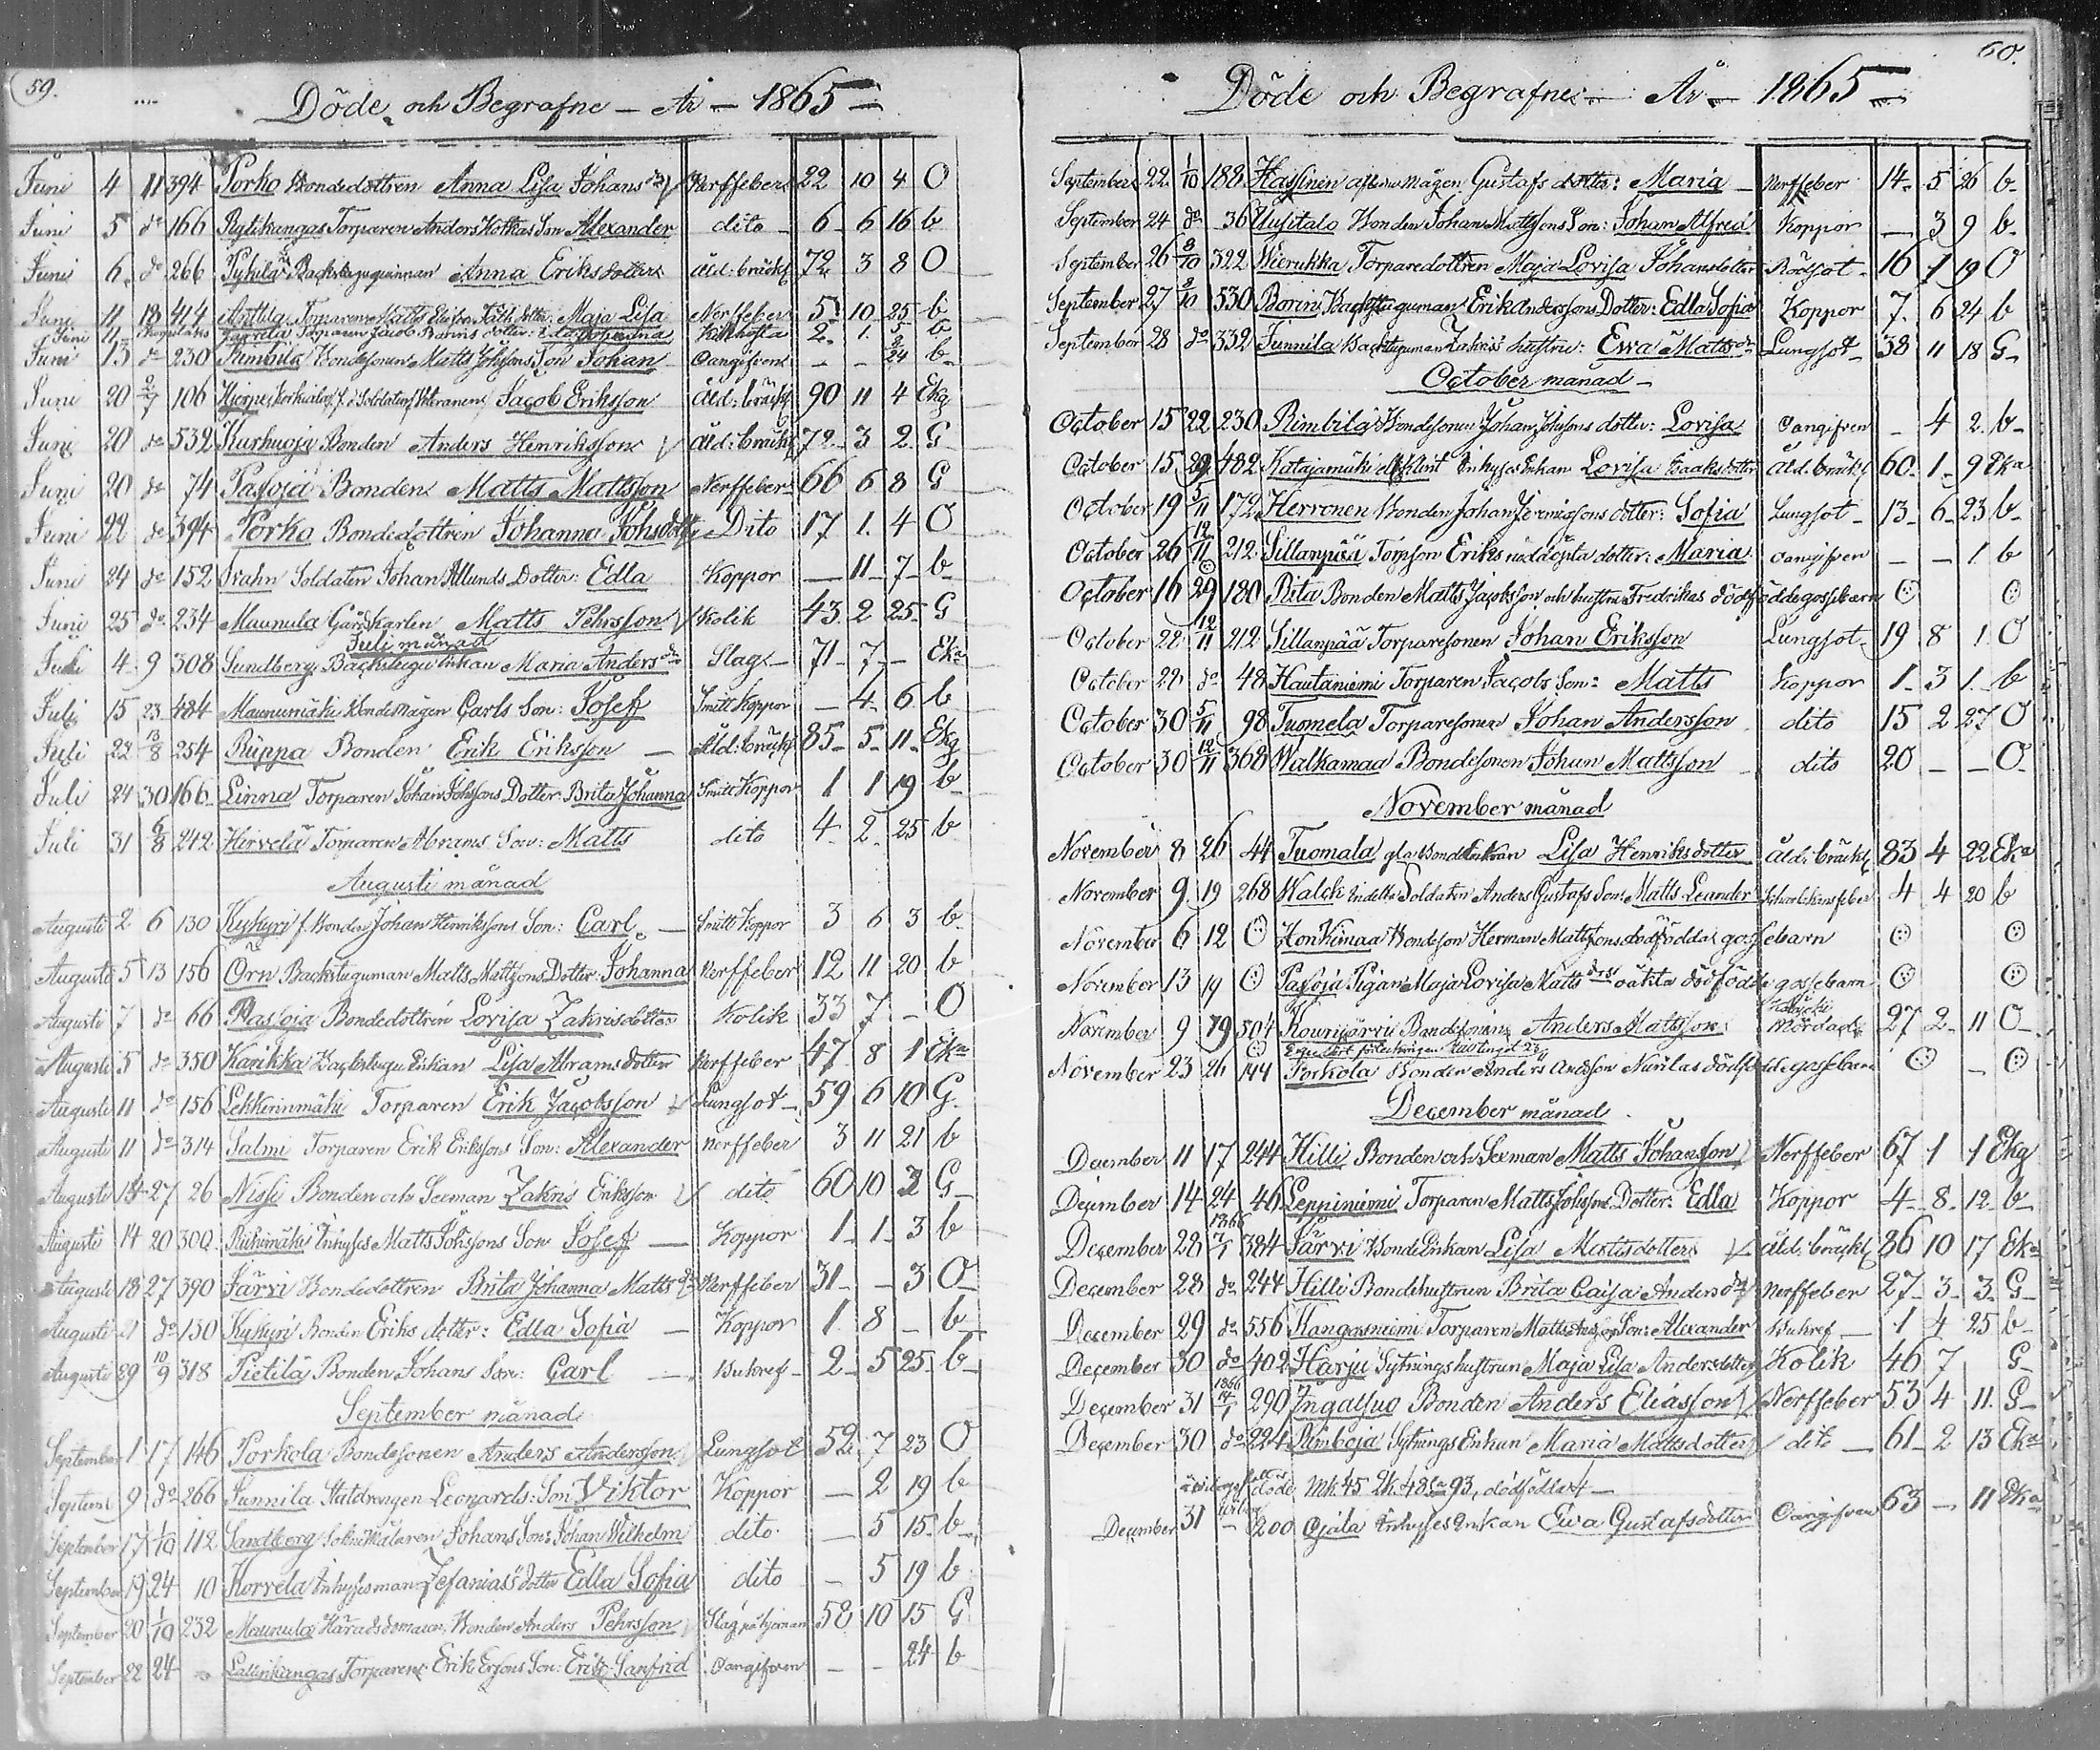 59.
Döde och Begrafne - År - 1865 -
Juni 4 11 394 Porko Bondedottren Anna Lisa Johans dr Nerffeber 22 10 4 O
Juni 5 do 166 Rytikangas Torparen Anders Hotkas Son Alexander dito 6 6 16 b
Juni 6 do 266 Pyhilä Backstuguqvinnan Anna Eriksdotter åld: bräckl 72 3 8 O
Juni 11 18 414 Anttila Torparen Matts dotter: Maja Lisa Nerffeber 5 10 25 b
Juni 11 Torparen Jacob dotter: Johanna Kikhosta 2 1 5 b
Juni 13 do 230 Rimbilä Bondesonen Matts Johssons Son Johan Oangifven - - 24 b
Juni 20 2/7 106 Hjerpe Soldaten Veteranen Jacob Eriksson åld: bräckl 90 11 4 Ekg
Juni 20 do 532 Kurhuoja Bonden Anders Henriksson åld: bräckl 72 3 2 G
Juni 20 do 74 Pasoja Bonden Matts Mattsson Nerffeber 66 6 8 G
Juni 22 do 394 Porko Bondedottren Johanna Johsdotter Dito 17 1 4 O
Juni 24 do 152 Svahn Soldaten Johan Allunds Dotter: Edla Koppor - 11 7 b
Juni 25 do 234 Maunula Gårdskarlen Matts Pehrsson Kolik 43 2 25 G
Juli månad
Juli 4 9 308 Sundberg Backstugu Enkan Maria Anders dr Slag 71 7 - Eka
Juli 15 23 484 Maunumäki Bondemågen Carls Son: Josef Smitt Koppor - 4 6 b
Juli 22 13/8 254 Riippa Bonden Erik Eriksson - åld: bräckl 85 5 11 Ekg
Juli 24 30 166 Linna Torparen Johan Johssons Dotter: Brita Johanna Smitt Koppor 1 1 19 b
Juli 31 6/8 242 Hirvelä Torparen Abrams Son: Matts dito 4 2 25 b
Augusti månad
Augusti 2 6 130 Kykyri f. Bonden Johan Henrikssons Son: Carl - Smitt Koppor 3 6 3 b
Augusti 5 13 156 Örn Backstuguman Matts Mattssons Dotter: Johanna Nerffeber 12 11 20 b
Augusti 7 do 66 Pasoja Bondedottren Lovisa Zakrisdotter Kolik 33 7 - O
Augusti 5 do 350 Karikka Backstugu Enkan Lisa Abramsdotter Nerffeber 47 8 1 Eka
Augusti 11 do 156 Lekkerinmäki Torparen Erik Jacobsson Lungsot 59 6 10 G
Augusti 11 do 314 Salmi Torparen Erik Erikssons Son: Alexander Nerffeber 3 11 21 b
Augusti 14 27 26 Nissi Bonden och Sexman Zakris Eriksson dito 60 10 3 G
Augusti 14 20 300 Riihimäki Inhyses Matts Johssons Son Josef - Koppor 1 1 3 b
Augusti 18 27 390 Järvi Bondedottren Brita Johanna Matts dr Nerffeber 31 - 3 O
Augusti 21 do 130 Kykyri Bonden Eriks dotter: Edla Sofia - Koppor 1 8 - b
Augusti 29 10/9 318 Pietilä Bonden Johans Son: Carl Bukref 2 5 25 b
September månad
September 1 17 146 Porkola Bondesonen Anders Andersson Lungsot 52 7 23 O
September 9 do 266 Sunnila Statdrengen Leonards Son Viktor Koppor - 2 19 b
September 17 1/10 112 Sandberg Sokne Målaren Johans Son: Johan Wilhelm dito - 5 15 b
September 19 24 10 Korvela Inhysesman Zefanias dotter Edla Sofia dito - 5 19 b
September 20 1/10 232 Maunula Häradsdomaren Bonden Anders Pehrsson Slag på hjernan 58 10 15 G
September 22 24 Torparen Erik Ersons Son: Erik Sanfrid Oangifven - - 24 b
60.
Döde och Begrafne - År - 1865 -
September 22 1/10 188 Hassinen mågen Gustafs dotter: Maria - Nerffeber 14 5 26 b
September 24 do 36 Uusitalo Bonden Johan Mattssons Son: Johan Alfred Koppor - 3 9 b
September 26 8/10 322 Wierukka Torparedottren Maja Lovisa Johansdotter Rödsot 16 1 19 O
September 27 2/10 530 Borin Backstuguman Erik Anderssons Dotter: Edla Sofia Koppor 7 6 24 b
September 28 do 332 Junnila Backstuguman Zakris's hustru: Ewa Matts dr Lungsot 38 11 18 G
October månad -
October 15 22 230 Rimbilä Bondesonen Johan Johssons dotter: Lovisa Oangifven - 4 2 b
October 15 29 482 Katajamäki Inhyses Enkan Lovisa Isaksdotter åld: bräckl 60 1 9 Eka
October 19 5/11 172 Herronen Bonden Johan Jeremissons dotter: Sofia Lungsot 13 6 23 b
October 26 12/11 212 Sillanpää Torpson Eriks nöddöpta dotter: Maria Oangifven - - 1 b
October 16 29 180 Rita Bonden Matts Jacobsson och hustru Fredrikas dödfödde gossebarn
October 22 12/11 212 Sillanpää Torparesonen Johan Eriksson Lungsot 19 8 1 O
October 22 do 48 Hautaniemi Torparen Jacobs Son: Matts Koppor 1 3 1 b
October 30 5/11 98 Tuomela Torparesonen Johan Andersson dito 15 2 27 O
October 30 12/11 368 Walkamaa Bondesonen Johan Mattsson dito 20 - - O
November månad
November 8 26 44 Tuomala gla Bonde Enkan Lisa Henriksdotter åld: bräckl 83 4 22 Eka
November 9 19 268 Walck Indelta Soldaten Anders Gustafs Son: Matts Leander Scharlakansfeber 4 4 20 b
November 6 12 Honkimaa Bondson Herman Mattssons dödfödda gossebarn
November 13 19 Pasoja Pigan Maja Lovisa Matts drs oäkta dödfödde gossebarn
November 9 19 504 Kourijärvi Bondesonen Anders Mattsson mördad 27 2 11 O
November 23 26 144 Porkola Bonden Anders Andsson Nurilas dödfödde gossebarn
December månad
December 11 17 244 Hilli Bonden och Sexman Matts Johansson Nerffeber 67 1 1 Ekg
December 14 24 46 Leppiniemi Torparen Matts Johssons Dotter: Edla Koppor 4 8 12 b
December 28 1866 7/1 384 Järvi Bonde Enkan Lisa Mattsdotter åld: bräckl 86 10 17 Eka
December 28 do 244 Hilli Bondehustrun Brita Caisa Anders dr Nerffeber 27 3 3 G
December 29 do 556 Kangasniemi Torparen Matts Andsons Son: Alexander Bukref 1 4 25 b
December 30 do 402 Harju Sytningshustrun Maja Lisa Andersdotter Kolik 46 7 G
December 31 1866 14/1 290 Ingalsuo Bonden Anders Eliasson Nerffeber 53 4 11 G
December 30 do 224 Rimboja Sytnings Enkan Maria Mattsdotter dito - 61 2 13 Eka
döde, Mk. 45 Qk. 48 = 93, dödfödde 4 -
December 31 - 200 Ojala Inhyses Enkan Ewa Gustafsdotter Oangifven 63 - 11 Eka